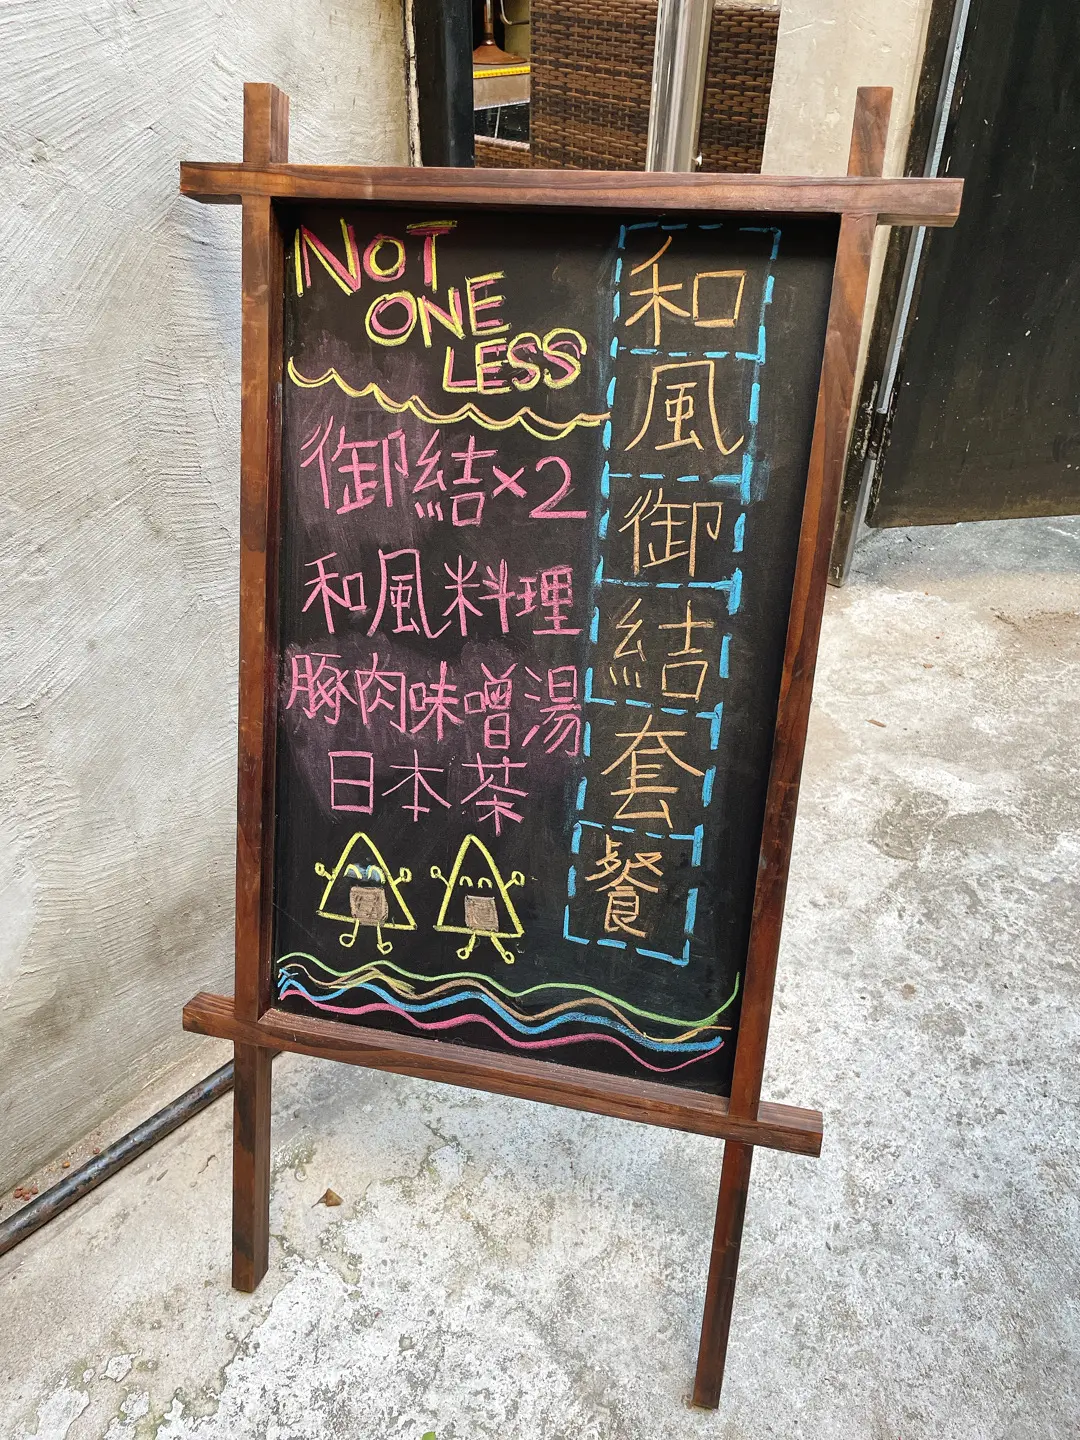 NOT
ONE
LESS
御結×2
和風料理
豚肉味噌湯
日本茶
和風御結套餐